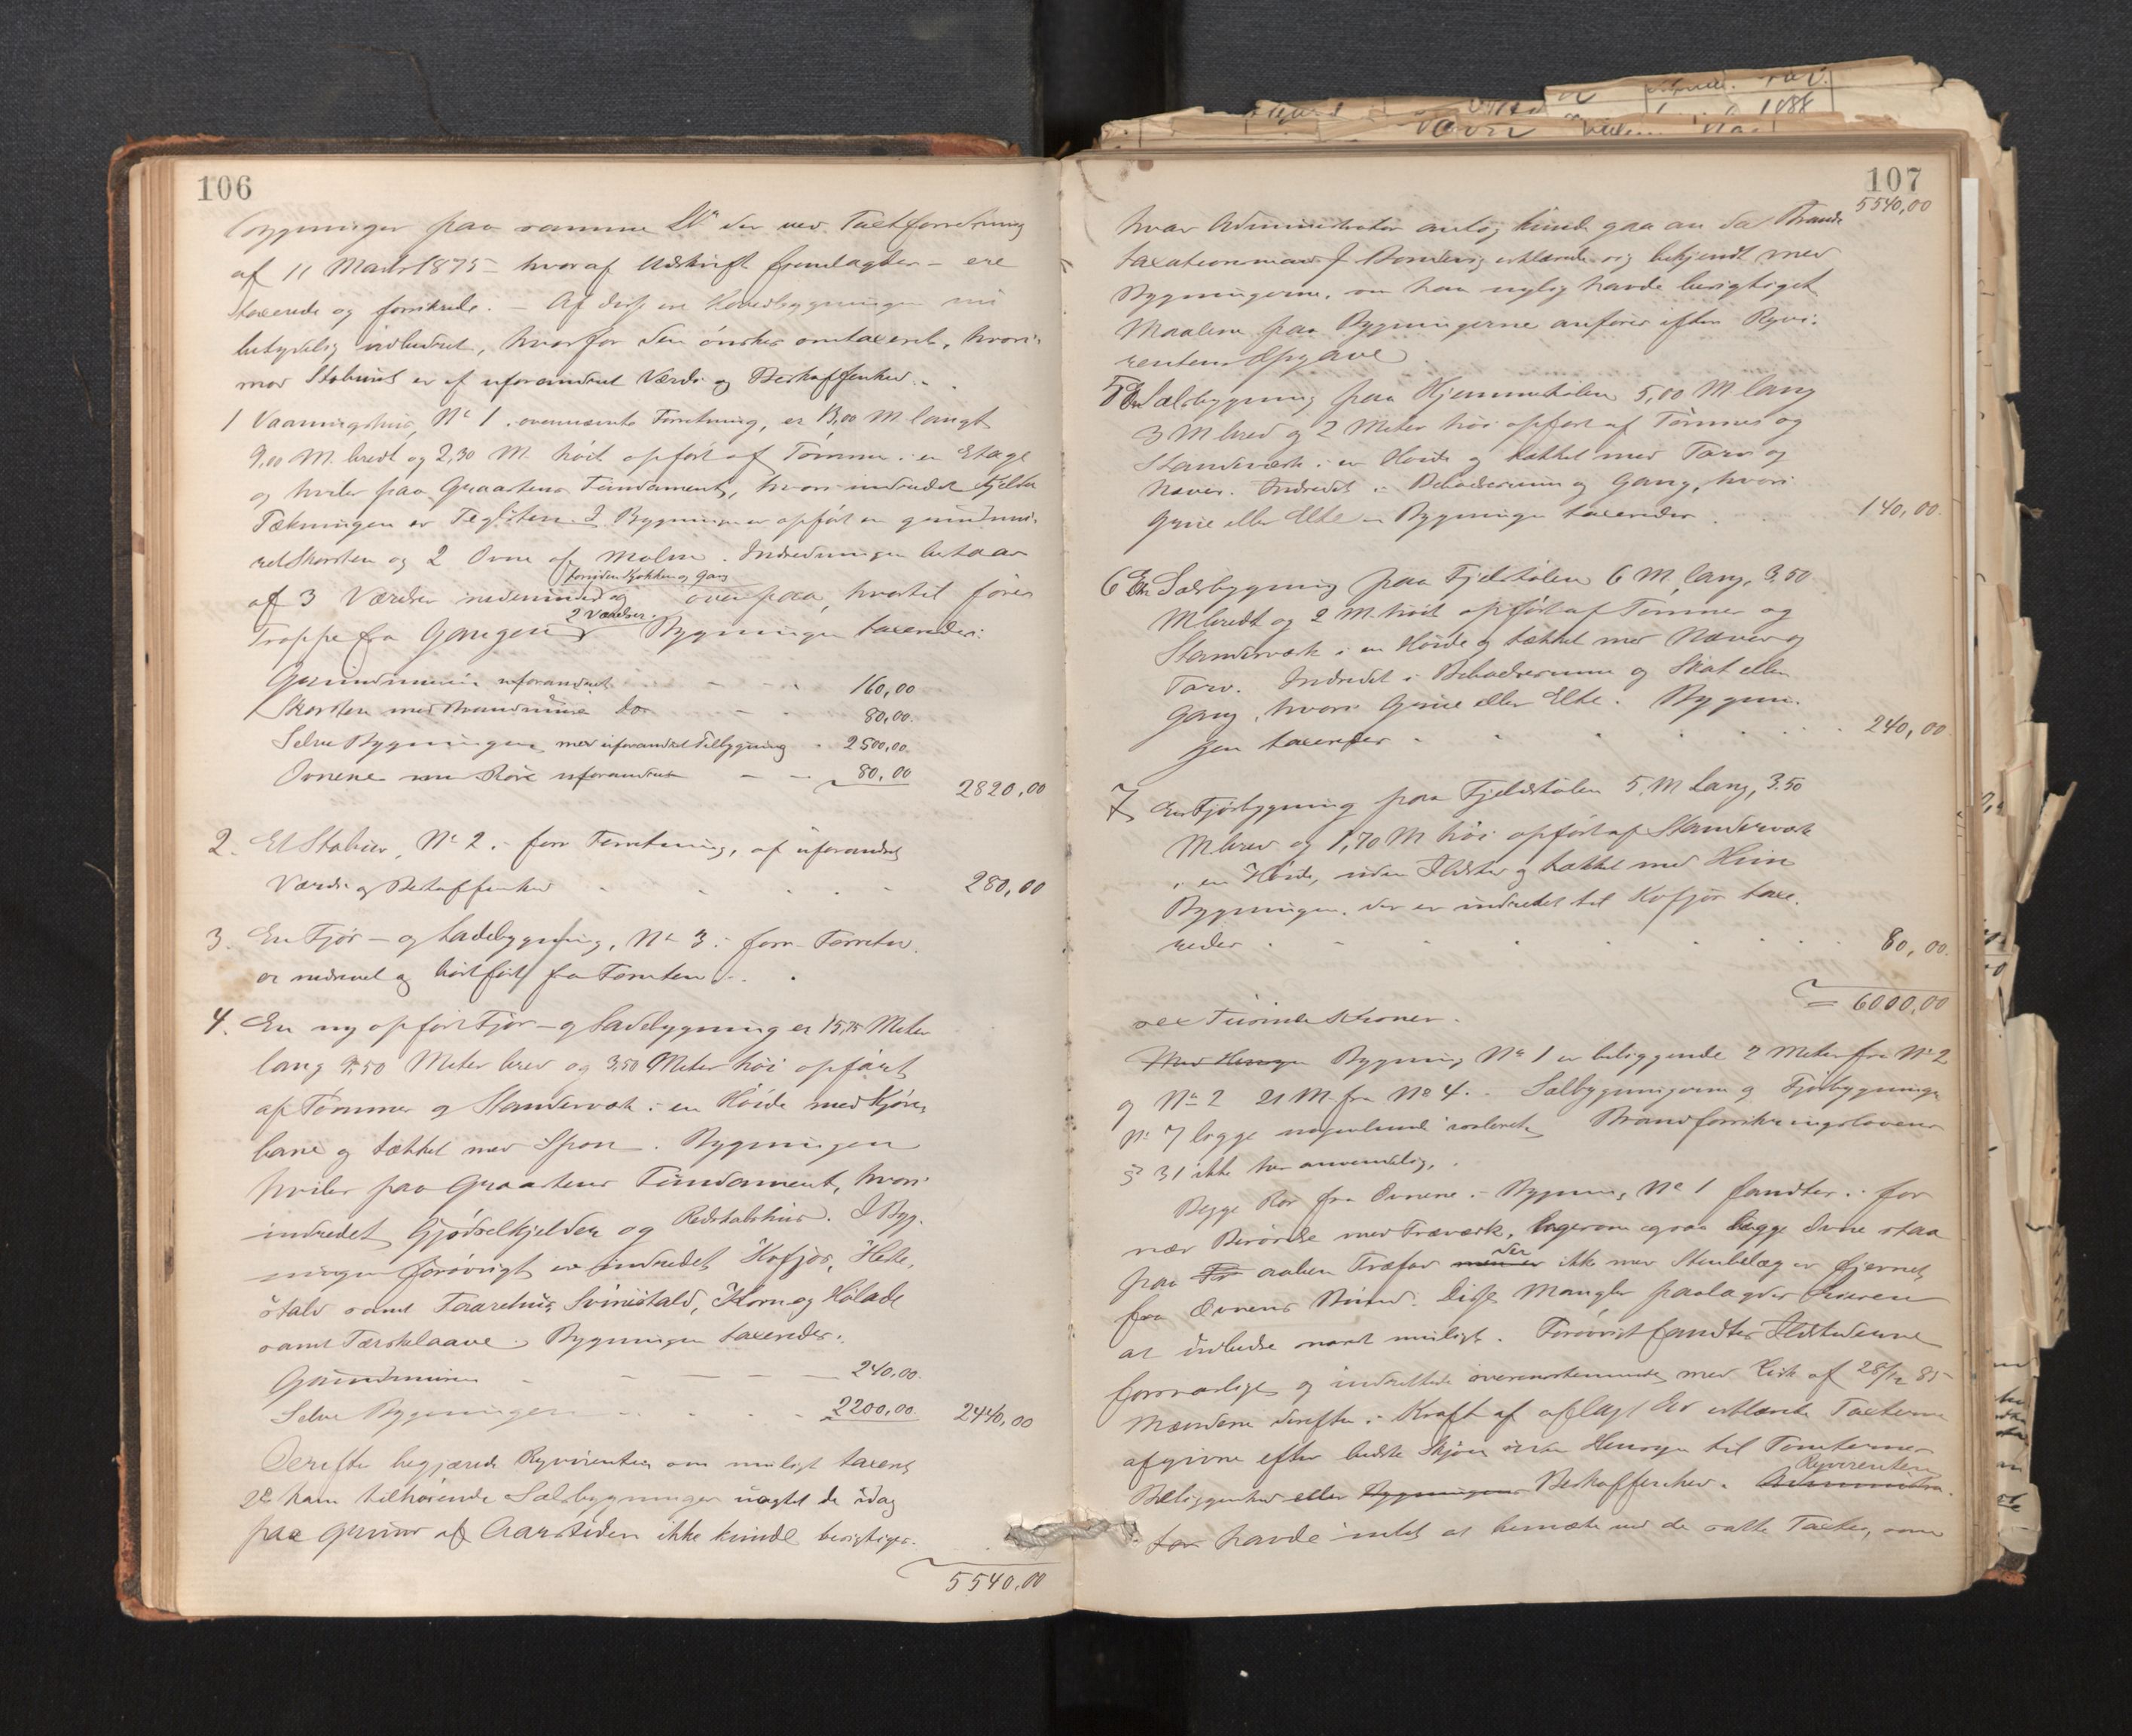 106
bygninger paa samme No der ved Taxtforretning
af 11 Marts 1875 – hvoraf Udskrift fremlagdes – ere
taxerede og forsikrede. – Af disse er Hovedbygningen nu
betydelig udbedret, hvorfor den ønskes omtaxeret, hvori-
mod Stabured er af uforandret Værdi og Beskaffenhed.
1 Vaaningshus, No 1 i ovennævnte Forretning, er 13,00 M langt
9,00 M. bredt og 2,30 M. höit opfört af Tömmer i en Etage
og hviler paa Graastens Fundament, hvori indredet Kjelder
Tækningen er Teglsten. I Bygningen er opfört en grundmu-
ret Skorsten og 2 Ovne af Malm. Indredningen bestaar
foruden Kjökken og Gang
af 3 Værelser nedenunder og ovenpaa, hvortil förer
2 Værelser
Trappe fra Gangen. Bygningen taxeredes:
Grundmuren uforandret 160,00
Skorsten med Brandmure do 80,00.
Selve Bygningen med uforandret Tilbygning 2500,00.
Ovnene med Rör uforandret 80,00 2820,00
2. Et Stabur, No 2 i forr. Forretning, af uforandret
Værdi og Beskaffenhed 280,00
3. En Fjös- og Ladebygning, No 3 i forr. Forretn.
er nedrevet og bortfört fra Tomten.
4. En ny opfört Fjös- og Ladebygning er 15,75 Meter
lang 9,50 Meter bred og 3,50 Meter höi opfört
af Tömmer og Standerværk i en Höide med Kjöre-
bane og tækket med Spon. Bygningen
hviler paa Graastens Fundament, hvori
indredet Gjödselkjelder og Redskabshus. I Byg-
ningen forövrigt er indredet Kofjös, Heste-
stald samt Faarehus, Svinestald, Korn og Hölade
samt Tærskelaave. Bygningen taxeredes:
Grundmuren 240,00.
Selve Bygningen 2200,00. 2440,00
Derefter begjærede Rekvirenten om muligt taxeret
2de ham tilhörende Sælsbygninger uagtet de idag
paa Grund af Aarstiden ikke kunde besigtiges.
5540,00
107
5540,00
hvar Administrator antog kunde gaa an da Brand-
taxationsmand J erklærede sig bekjendt med
Bygningerne, som han nylig havde besigtiget
Maalene paa Bygningerne anföres efter Rqvi-
rentens Opgave
5 En Sælsbygning paa Hjemmestölen 5,00 M lang
3 M bred og 2 Meter höi opfört af Tömmer og
Standerværk i en Höide og tækket med Torv og
Næver. Indredet i Beboelsesrum og Gang, hvori
Grue eller Elte – Bygningen taxeredes 140,00.
6 En Sælsbygning paa Fjeldstölen 6 M. lang, 3.50
M bredt og 2 M. höit opfört af Tömmer og
Standerværk i en Höide og tækket med Næver og
Torv. Indredet i Beboelsesrum og Skot eller
Gang, hvori Grue eller Elte. Bygnin-
gen taxeredes 240,00
7 En Fjösbygning paa Fjeldstölen 5 M lang, 3.50
M bred og 1,70 M höi opfört af Standerværk
i en Höide, uden Ildsted og tækket med Hun
Bygningen, der er indredet til Kofjös taxe-
redes 80,00.
= 6000,00
sex Tusinde Kroner.
Med Hensyn Bygning No 1 er beliggende 2 Meter fra No 2
og No 2 21 M. fra No 4. Sælbygningerne og Fjösbygningen
No 7 ligge nogenlunde isoleret. Brandforsikringslovens
§ 31 ikke her anvendelig.
Begge Rör fra Ovnene i Bygning No 1 fandtes i for
nær Berörelse med Træværk, ligesom ogsaa begge Ovne staa
der
paa Fr aaben Træfod men er ikke med Stenbelæg er fjernet
fra Ovnens Bund. Disse Mangler paalagdes Eieren
at udbedre snarest muligt. Forövrigt fandtes Ildstederne
forsvarlige og indrettede overensstemmende med Cirk af 28/12 85
Mændene derefter i Kraft af aflagt Ed erklærede Taxterne
afgivne efter bedste Skjön uden Hensyn til Tomternes
Rqvirenten
Beliggenhed eller Bygningens Beskaffenhed. Administra-
tor havde intet at bemærke ved de satte Taxter, som